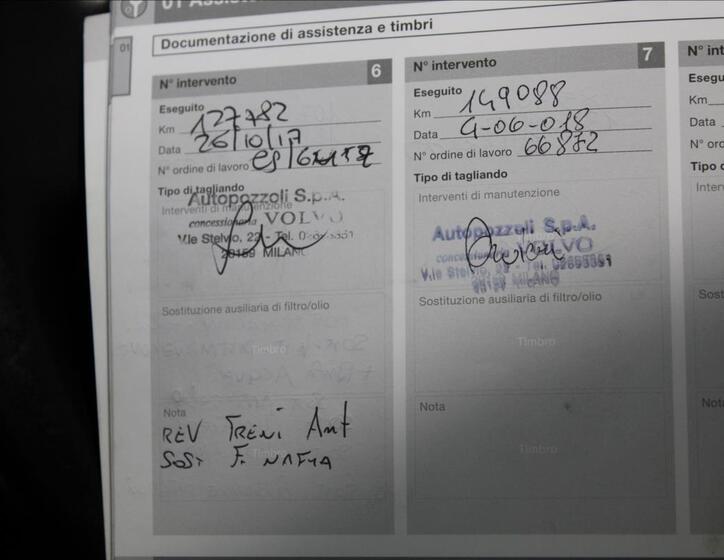 01
Documentazione di assistenza e timbri
N° intervento 6
Eseguito
Km 127782
Data 26/10/17
N° ordine di lavoro
Tipo di tagliando
Interventi di manutenzione
Autopozzoli S.p.A.
concessionaria VOLVO
V.le Stelvio, 22 - Tel.
20159 MILANO
Sostituzione ausiliaria di filtro/olio
Timbro
Nota
REV FRENI Ant
SOST F. NAFTA
N° intervento 7
Eseguito
Km 149088
Data 4-06-018
N° ordine di lavoro 66872
Tipo di tagliando
Interventi di manutenzione
Autopozzoli S.p.A.
concessionaria VOLVO
V.le Stelvio,
MILANO
Sostituzione ausiliaria di filtro/olio
Timbro
Nota
Timbro
N° in
Esegu
Km
Data
N° ord
Tipo d
Inter
Sost
Not